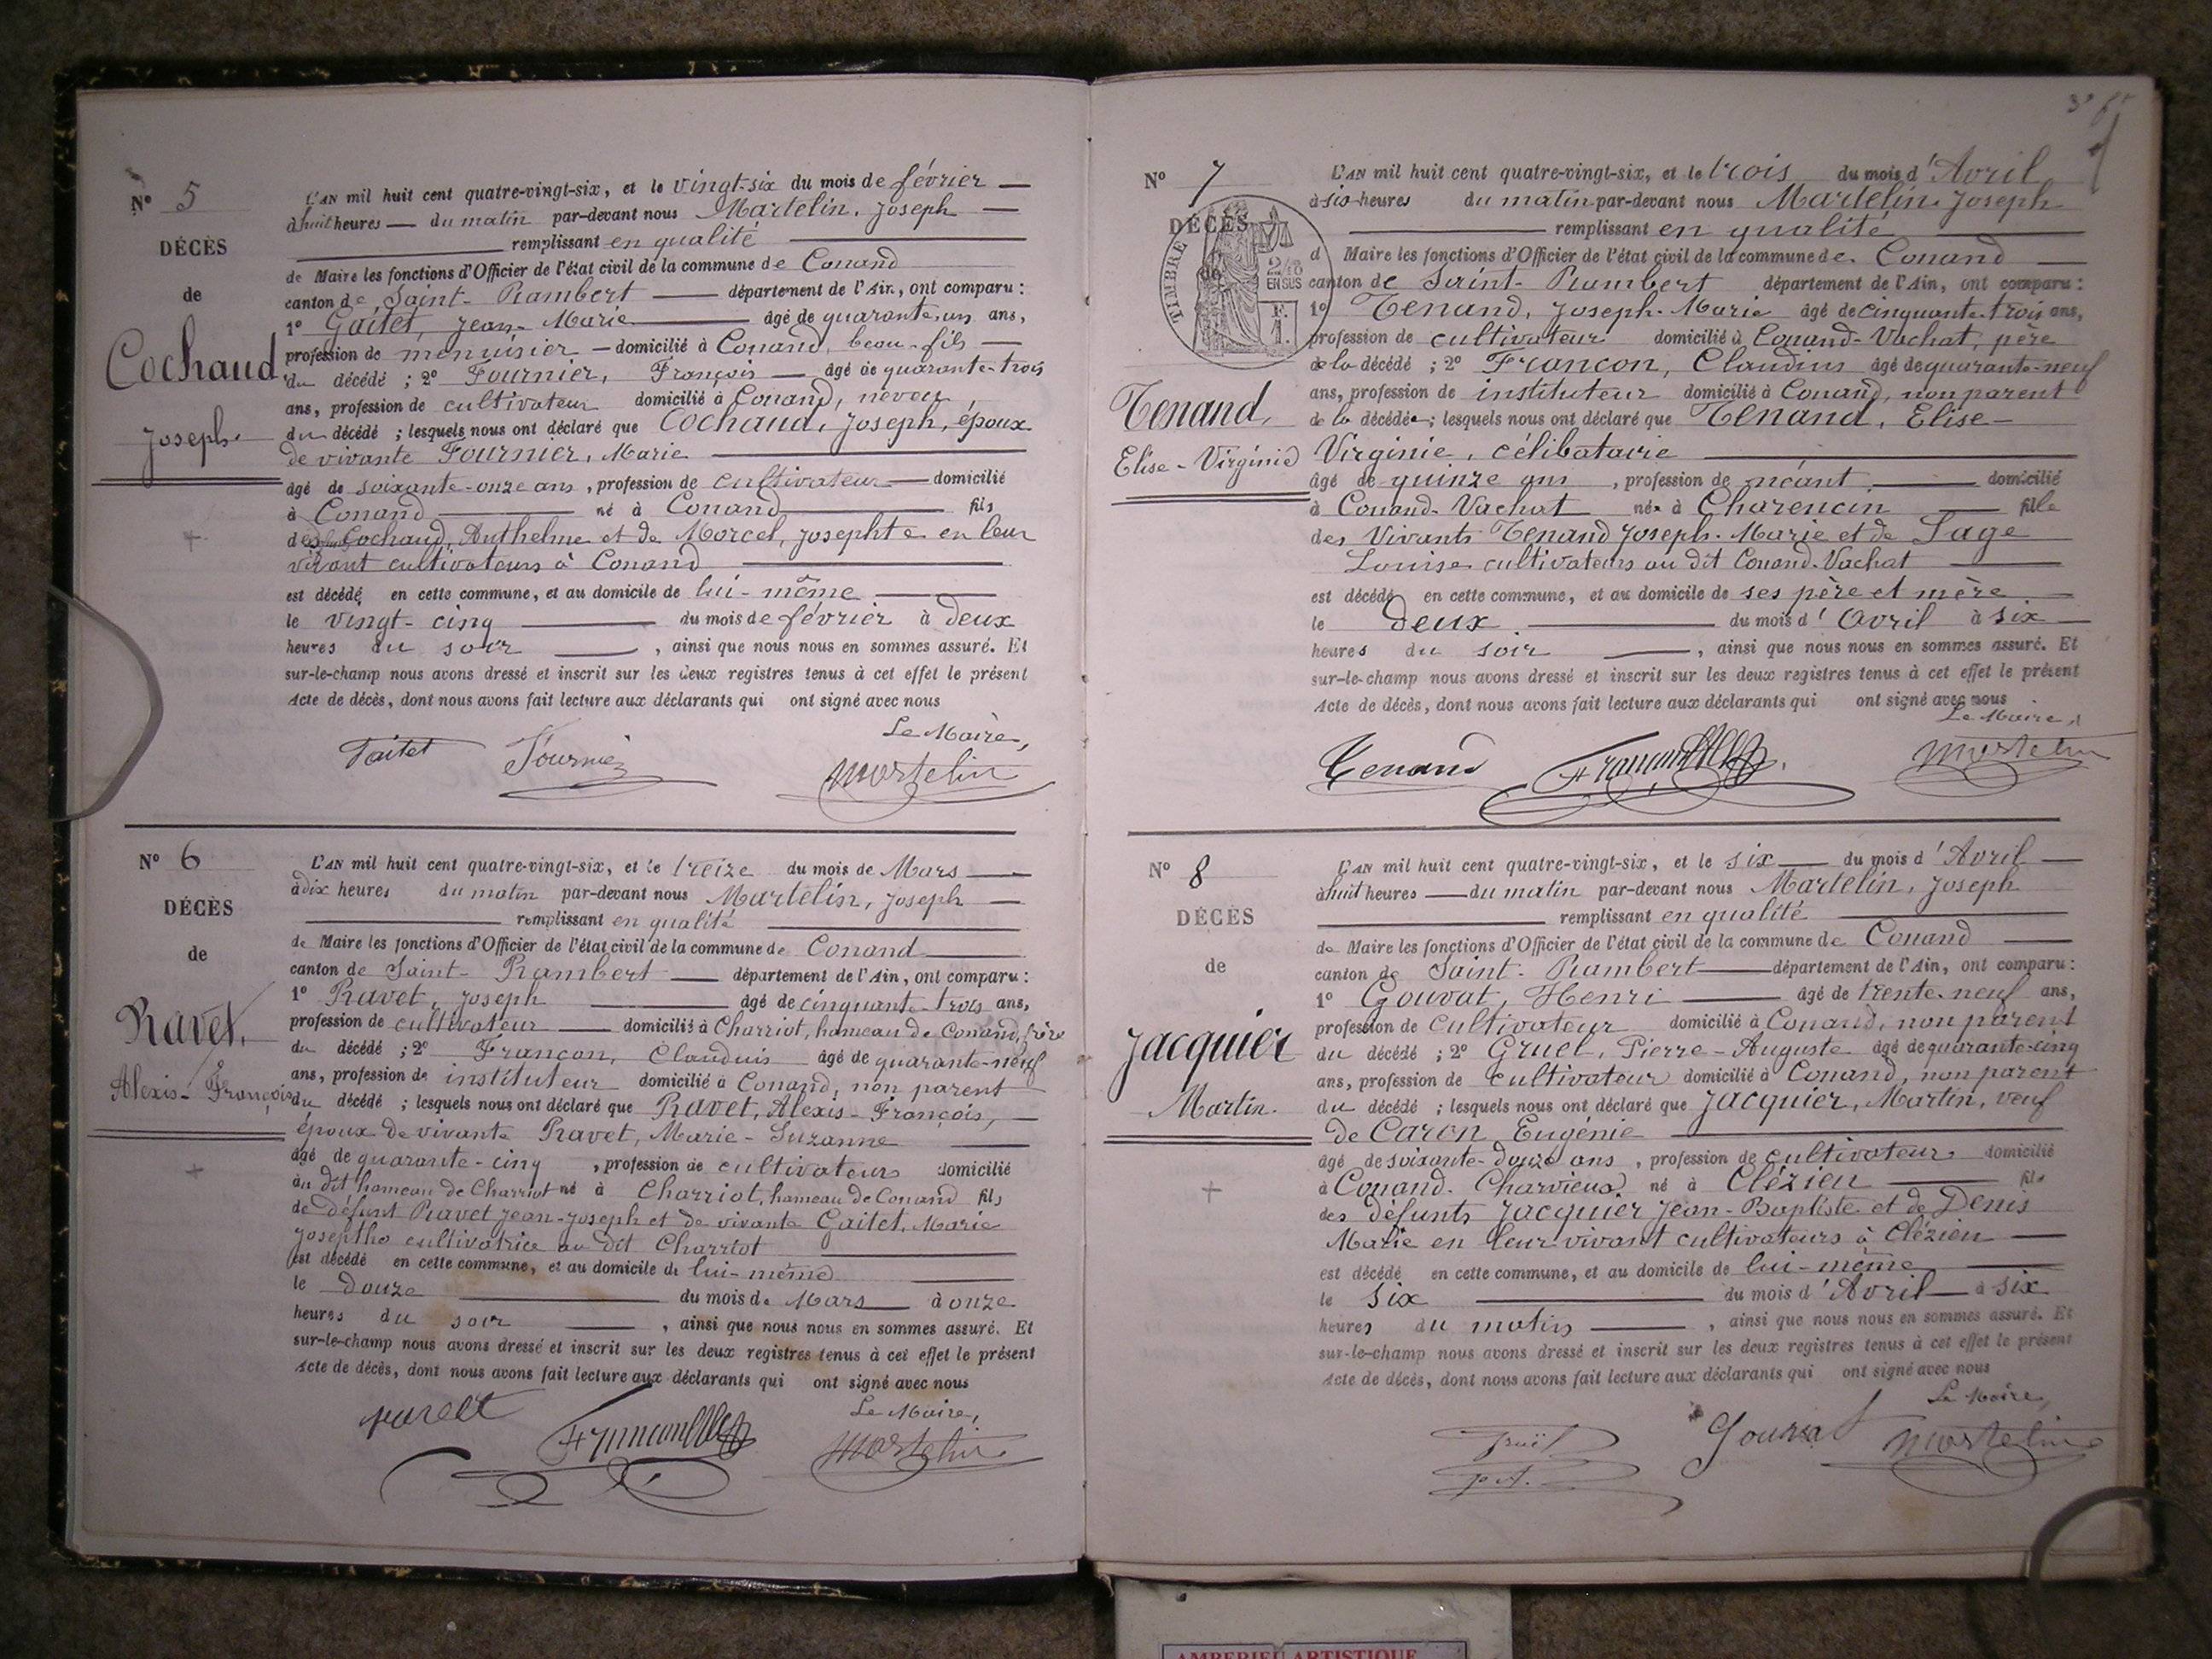 Nº 5
DÉCÈS
de
Cochaud
Joseph
L'AN mil huit cent quatre-vingt-six, et le vingt-six du mois de février
à huit heures du matin par-devant nous Martelin, Joseph
remplissant en qualité
de Maire les fonctions d'Officier de l'état civil de la commune de Conand
canton de Saint-Rambert département de l'Ain, ont comparu :
1º Gaitet, Jean-Marie âgé de quarante-un ans,
profession de menuisier domicilié à Conand, beau-fils
du décédé ; 2º Fournier, François âgé de quarante-trois
ans, profession de cultivateur domicilié à Conand, neveu
du décédé ; lesquels nous ont déclaré que Cochaud, Joseph, époux
de vivante Fournier, Marie
âgé de soixante-onze ans, profession de cultivateur domicilié
à Conand né à Conand fils
de Cochaud, Anthelme et de Morcel, Josephte en leur
vivant cultivateurs à Conand
est décédé en cette commune, et au domicile de lui-même
le vingt-cinq du mois de février à deux
heures du soir, ainsi que nous nous en sommes assuré. Et
sur-le-champ nous avons dressé et inscrit sur les deux registres tenus à cet effet le présent
Acte de décès, dont nous avons fait lecture aux déclarants qui ont signé avec nous
Le Maire,
Gaitet Fournier Martelin
Nº 6
DÉCÈS
de
Ravet,
Alexis-François
L'AN mil huit cent quatre-vingt-six, et le treize du mois de Mars
à dix heures du matin par-devant nous Martelin, Joseph
remplissant en qualité
de Maire les fonctions d'Officier de l'état civil de la commune de Conand
canton de Saint-Rambert département de l'Ain, ont comparu :
1º Ravet, Joseph âgé de cinquante-trois ans,
profession de cultivateur domicilié à Charriot, hameau de Conand, frère
du décédé ; 2º Françon, Claudius âgé de quarante-neuf
ans, profession de instituteur domicilié à Conand, non parent
du décédé ; lesquels nous ont déclaré que Ravet, Alexis-François,
époux de vivante Ravet, Marie-Suzanne
âgé de quarante-cinq, profession de cultivateur domicilié
au dit hameau de Charriot né à Charriot, hameau de Conand fils
de défunt Ravet Jean-Joseph et de vivante Gaitet, Marie
Josephte cultivatrice au dit Charriot
est décédé en cette commune, et au domicile de lui-même
le douze du mois de Mars à onze
heures du soir, ainsi que nous nous en sommes assuré. Et
sur-le-champ nous avons dressé et inscrit sur les deux registres tenus à cet effet le présent
Acte de décès, dont nous avons fait lecture aux déclarants qui ont signé avec nous
Le Maire,
Françon Martelin
Nº 7
DÉCÈS
de
TIMBRE
2/10
EN SUS
F.
1.
Tenand,
Elise-Virginie
L'AN mil huit cent quatre-vingt-six, et le trois du mois d'Avril
à six heures du matin par-devant nous Martelin, Joseph
remplissant en qualité
d Maire les fonctions d'Officier de l'état civil de la commune de Conand
canton de Saint-Rambert département de l'Ain, ont comparu :
1º Tenand, Joseph-Marie âgé de cinquante-trois ans,
profession de cultivateur domicilié à Conand-Vachat, père
de la décédé ; 2º Françon, Claudius âgé de quarante-neuf
ans, profession de instituteur domicilié à Conand, non parent
de la décédée ; lesquels nous ont déclaré que Tenand, Elise-
Virginie, célibataire
âgé de quinze ans, profession de néant domicilié
à Conand-Vachat née à Charencin fille
des Vivants Tenand Joseph-Marie et de Sage
Louise cultivateurs au dit Conand-Vachat
est décédé en cette commune, et au domicile de ses père et mère
le deux du mois d'Avril à six
heures du soir, ainsi que nous nous en sommes assuré. Et
sur-le-champ nous avons dressé et inscrit sur les deux registres tenus à cet effet le présent
Acte de décès, dont nous avons fait lecture aux déclarants qui ont signé avec nous
Le Maire,
Tenand Françon Martelin
Nº 8
DÉCÈS
de
Jacquier
Martin.
L'AN mil huit cent quatre-vingt-six, et le six du mois d'Avril
à huit heures du matin par-devant nous Martelin, Joseph
remplissant en qualité
de Maire les fonctions d'Officier de l'état civil de la commune de Conand
canton de Saint-Rambert département de l'Ain, ont comparu :
1º Gouvat, Henri âgé de trente-neuf ans,
profession de cultivateur domicilié à Conand, non parent
du décédé ; 2º Gruel, Pierre-Auguste âgé de quarante-cinq
ans, profession de cultivateur domicilié à Conand, non parent
du décédé ; lesquels nous ont déclaré que Jacquier, Martin, veuf
de Caron Eugénie
âgé de soixante-douze ans, profession de cultivateur domicilié
à Conand-Charvieux né à Clézieu fils
des défunts Jacquier Jean-Baptiste et de Denis
Marie en leur vivant cultivateurs à Clézieu
est décédé en cette commune, et au domicile de lui-même
le six du mois d'Avril à six
heures du matin, ainsi que nous nous en sommes assuré. Et
sur-le-champ nous avons dressé et inscrit sur les deux registres tenus à cet effet le présent
Acte de décès, dont nous avons fait lecture aux déclarants qui ont signé avec nous
Le Maire,
Gruël Gouvat Martelin
p A.
AMBERIEU ARTISTIQUE